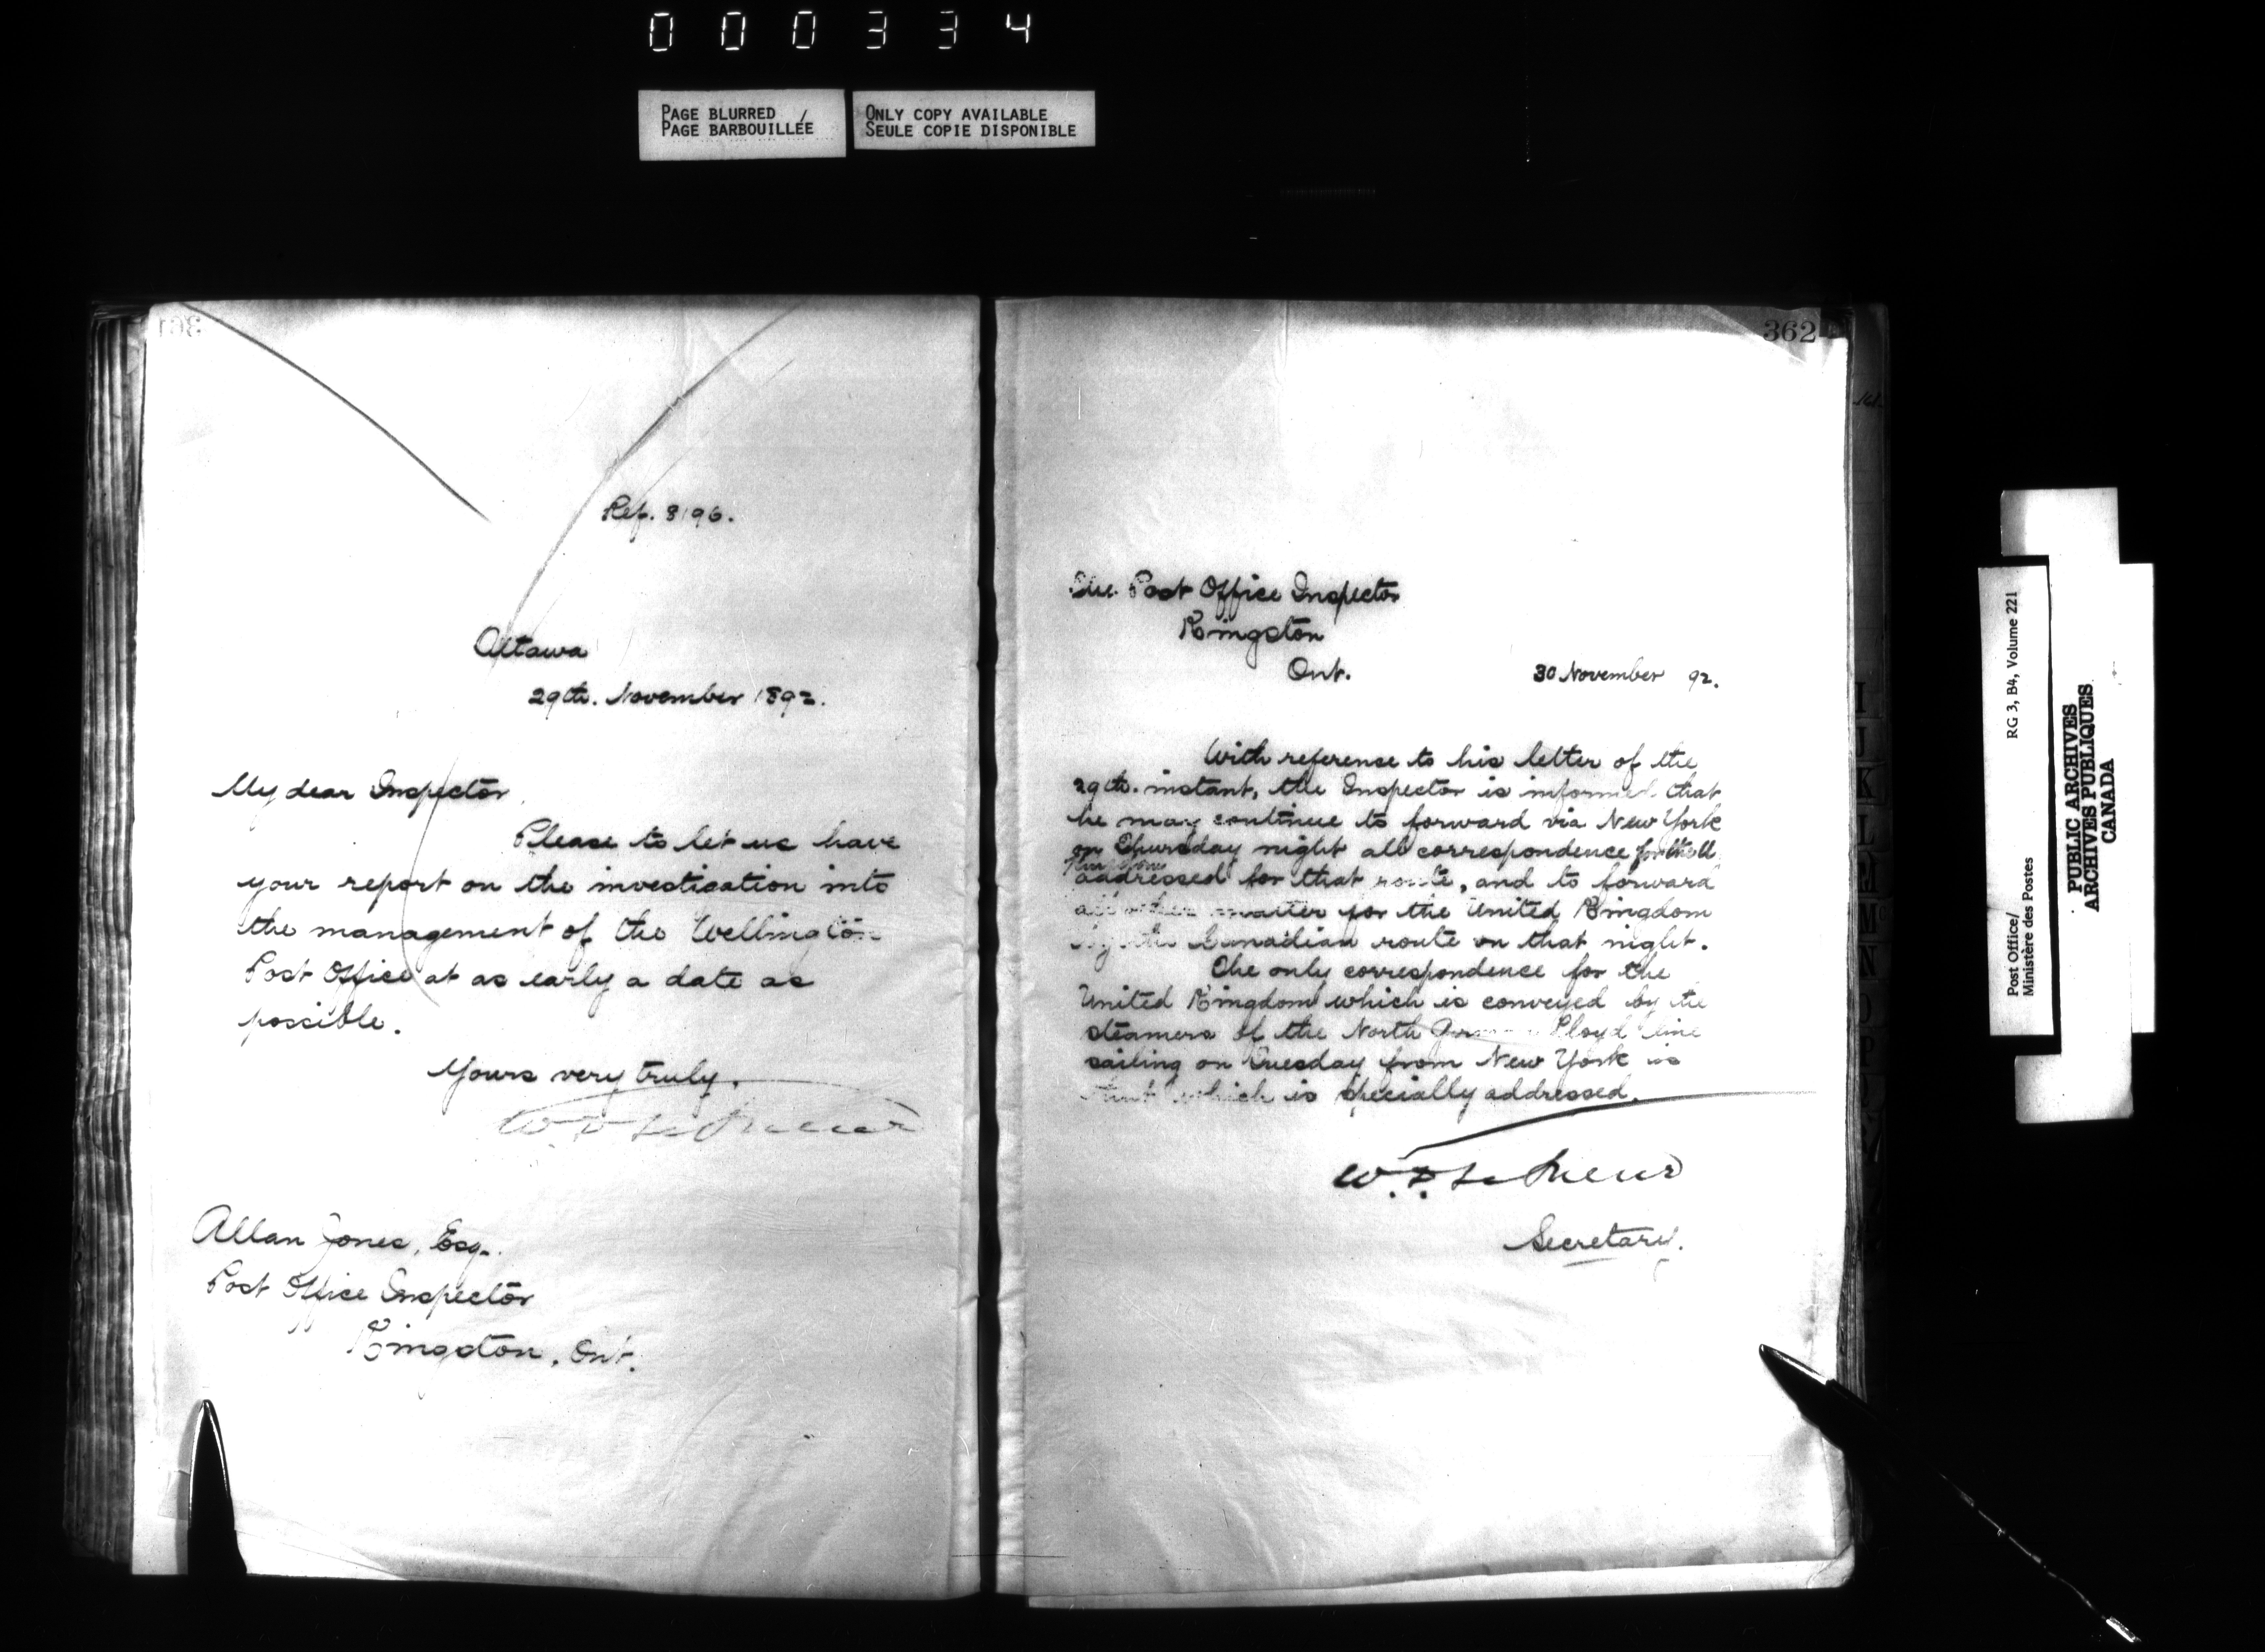 000334
PAGE BLURRED /
PAGE BARBOUILLÉE
ONLY COPY AVAILABLE
SEULE COPIE DISPONIBLE
361
Ref. 8196.
Ottawa
29th. November 1892.
My dear Inspector,
Please to let us have
your report on the investication into
the management of the Wellington
Post Office at as early a date as
possible.
Yours very truly,
W. D. LeSueur
Allan Jones, Esq.
Post Office Inspector
Kingston, Ont.
362
The Post Office Inspector
Kingston
Ont.
30 November 92.
With reference to his letter of the
29th. instant, the Inspector is informed that
he may continue to forward via New York
on Thursday night all correspondence for the U
addressed for that route, and to forward
all other matter for the United Kingdom
by the Canadian route on that night.
The only correspondence for the
United Kingdom which is conveyed by the
steamers of the North German Lloyd line
sailing on Tuesday from New York is
that which is specially addressed.
W. D. LeSueur
Secretary.
Post Office/
Ministère des Postes
RG 3, B4, Volume 221
PUBLIC ARCHIVES
ARCHIVES PUBLIQUES
CANADA